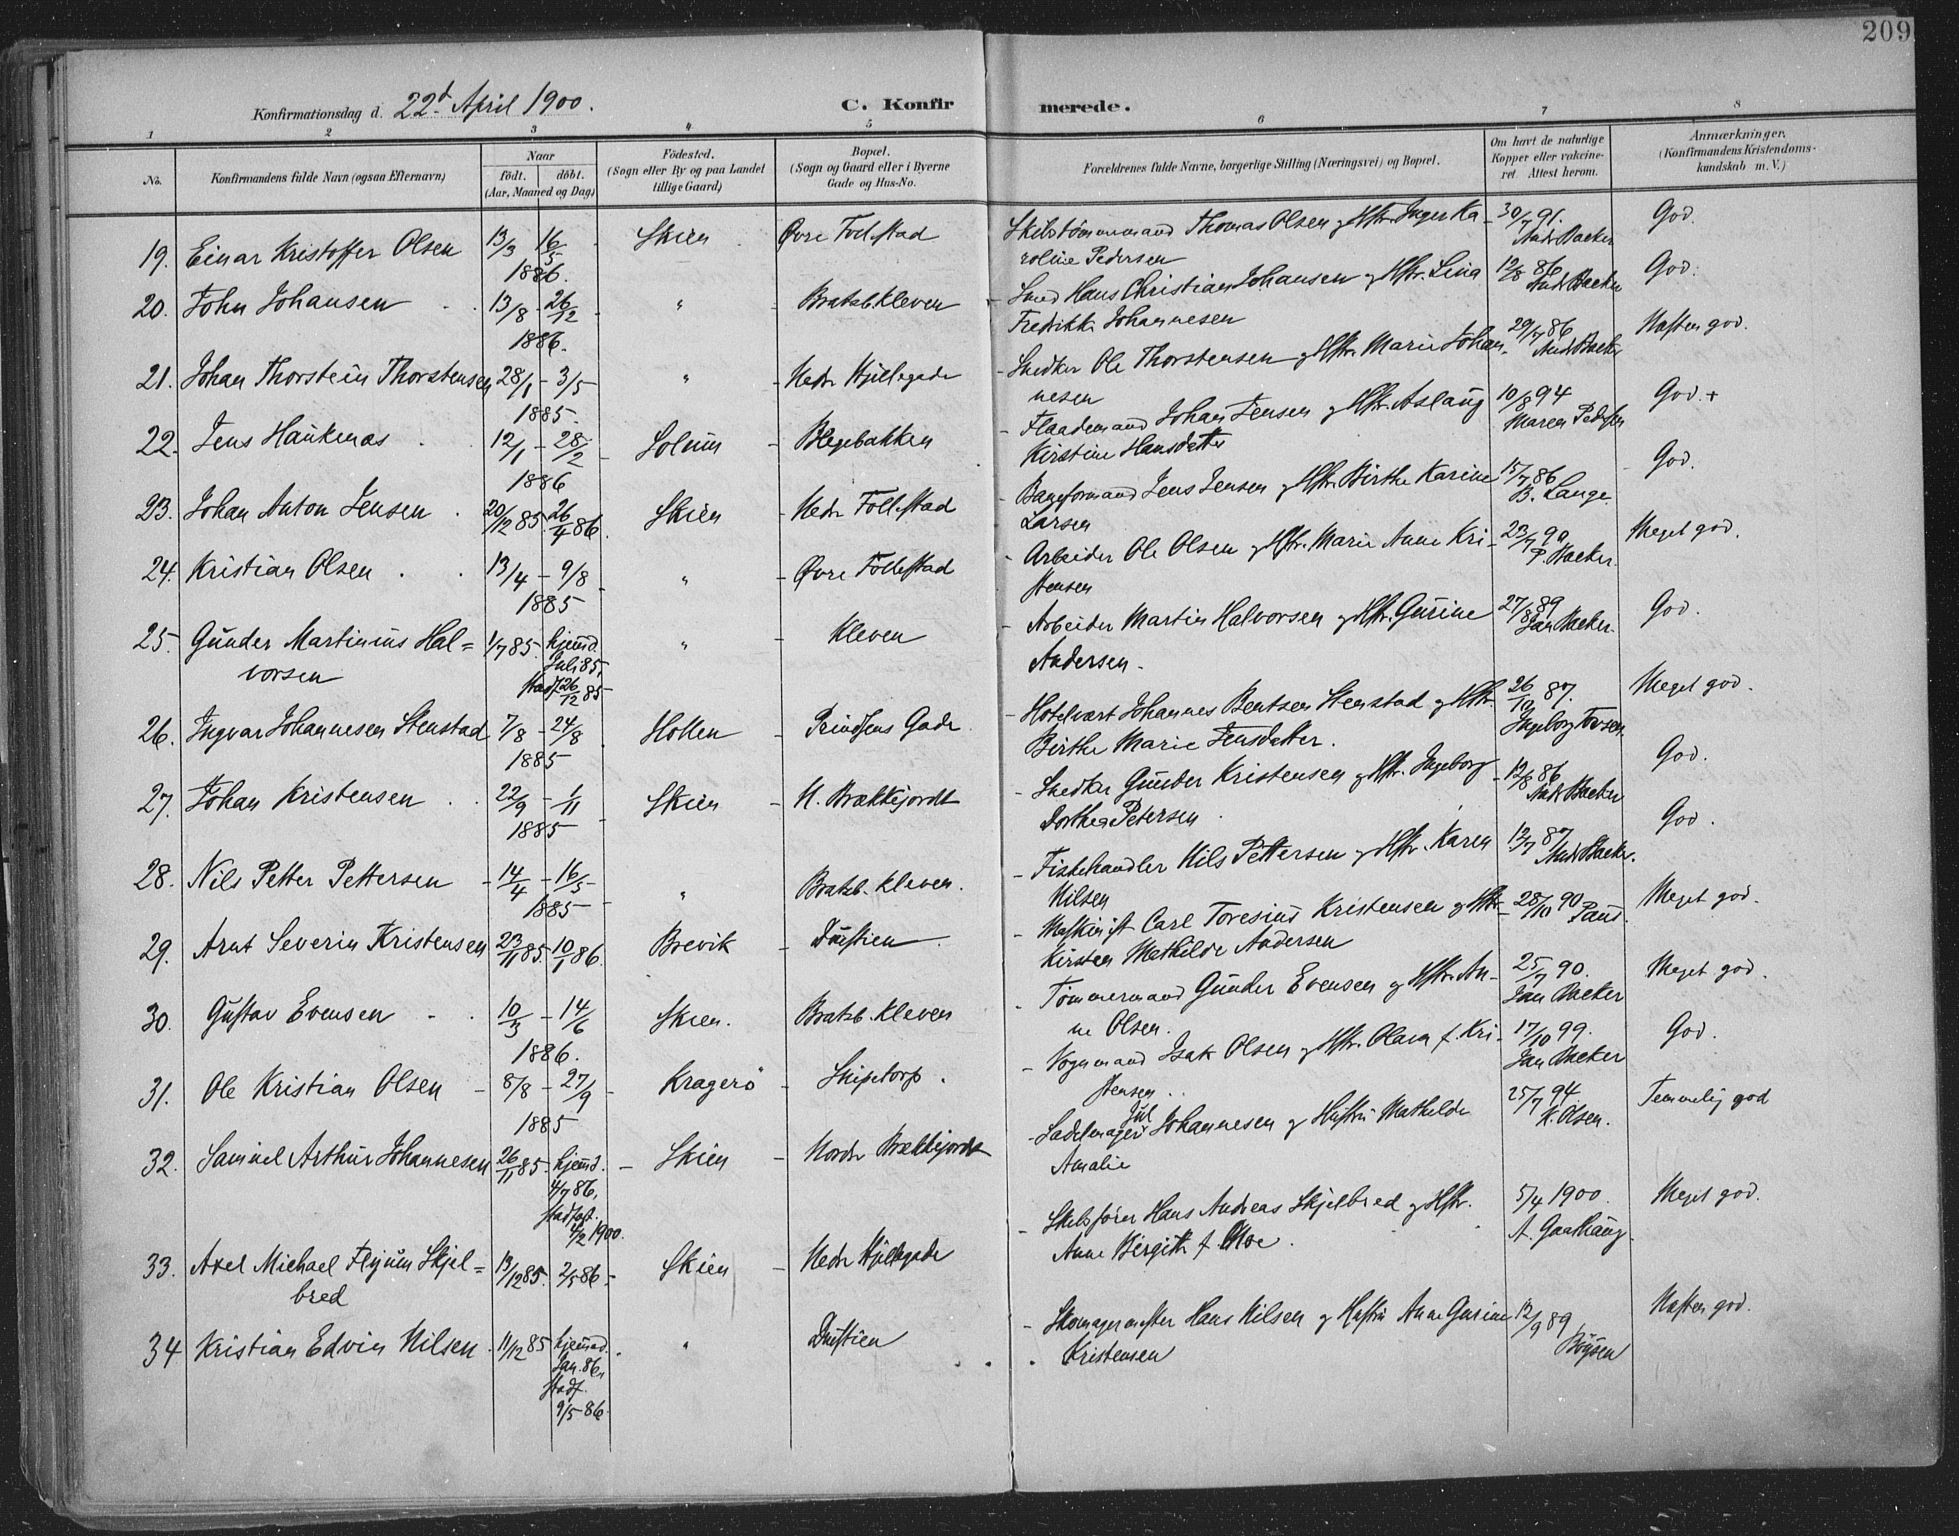 209
Konfirmationsdag d. 22d April 1900.
C. Konfirmerede.
1 2 3 4 5 6 7 8
No.
Konfirmandens fulde Navn (ogsaa Efternavn)
Naar
født. døbt.
(Aar, Maaned og Dag)
Fødested.
(Sogn eller By og paa Landet
tillige Gaard)
Bopæl.
(Sogn og Gaard eller i Byerne
Gade og Hus-No.
Forældrenes fulde Navne, borgerlige Stilling (Næringsvei) og Bopæl.
Om havt de naturlige
Kopper eller vakcine-
ret. Attest herom.
Anmærkninger.
(Konfirmandens Kristendoms-
kundskab m. V.)
19. Einar Kristoffer Olsen 13/3 16/5 Skien Øvre Follestad Skibstømmermand Thomas Olsen og Hstr. Inger Ka- 30/7 91. God.
1886. roline Pedersen Andr Backer
20. John Johansen 13/8 - 26/12 " Bratsb. Kleven Smed Hans Christian Johansen og Hstr. Lina 12/8 86 God.
1886. Fredrikke Johannesen Andr Backer
21. Johan Thorstein Thorstensen 28/1 - 3/5 " Nedr Hjellegade Snedker Ole Thorstensen og Hstr. Marie Johan- 29/7 86 Næsten god.
1885. nesen Andr Backer
22. Jens Haukenæs 12/1 - 28/2 Solum Blegebakken Flaademand Johan Jensen og Hstr. Aslaug 10/8 94 God. +
1886 Kirstine Hansdatter Maren Pedersen
23. Johan Anton Jensen 20/12 85. 26/4 86. Skien Nedr Follestad Baneformand Jens Jensen og Hstr. Birthe Karine 15/7 86 God.
Larsen B. Lange.
24. Kristian Olsen 13/4 - 9/8 " Øvre Follestad Arbeider Ole Olsen og Hstr. Marie Anne Kri- 23/7 90 Meget god.
1885 stensen P. Backer.
25. Gunder Martinius Hal= 1/7 85. hjemd. " Kleven Arbeider Martin Halvorsen og Hstr. Gurine 27/8 89 God.
vorsen Juli 85, Andersen. Jan Backer.
stadf. 26/12 85
26. Ingvar Johannesen Stenstad 7/8 - 24/8 Hollen Prindsens Gade Hotelvært Johannes Bentsen Stenstad og Hstr. 26/10 87. Meget god.
1885 Birthe Marie Jensdatter. Ingeborg Torsen
27. Johan Kristensen 22/9 - 1/11 Skien N. Brækkejordt Snedker Gunder Kristensen og Hstr. Ingeborg 12/8 86 God.
1885 Dorthea Petersen. Andr Backer
28. Nils Petter Pettersen 14/4 - 16/5 " Bratsb. Kleven. Fiskehandler Nils Pettersen og Hstr. Karen 12/7 87 God.
1885 Nilsen Andr Backer.
29. Arnt Severin Kristensen 23/11 85. 10/1 86. Brevik Duestien Maskinist Carl Toresius Kristensen og Hstr 28/10 90 Meget god.
Kirsten Mathilde Andersen Paus.
30. Gustav Evensen 10/3 - 14/6 Skien. Bratsb. Kleven Tømmermand Gunder Evensen og Hstr. An- 25/7 90. Meget god.
1886. ne Olsen. Jan Backer
31. Ole Kristian Olsen 8/8 - 27/9 Kragerö Skipetorp. Vognmand Isak Olsen og Hstr. Olava f. Kri- 17/10 99. God.
1885 stensen. Jan Backer
32. Samuel Arthur Johannesen 26/11 85 - hjemd. Skien Nordr Brækkejordt Sadelmager Jul Johannesen og Hustru Mathilde 25/7 94 Temmelig god
4/7 86, Amalie K. Olsen.
stadfæst.
4/2 1900.
33. Axel Michael Flyum Skjel= 13/12 85. 2/5 86 Skien Nedr Hjellegade Skibsfører Hans Andreas Skjelbred og Hstr. 5/4 1900. Meget god.
bred Anne Birgith f. Moe. A. Gaathaug.
34 Kristian Edvin Nilsen 11/12 85 hjemmed. " Duestien Skomagermester Hans Nilsen og Hustru Anne Gurine 12/9 89, Næsten god.
Jan. 86, Kristensen Bøysen
stadf.
9/5 86.